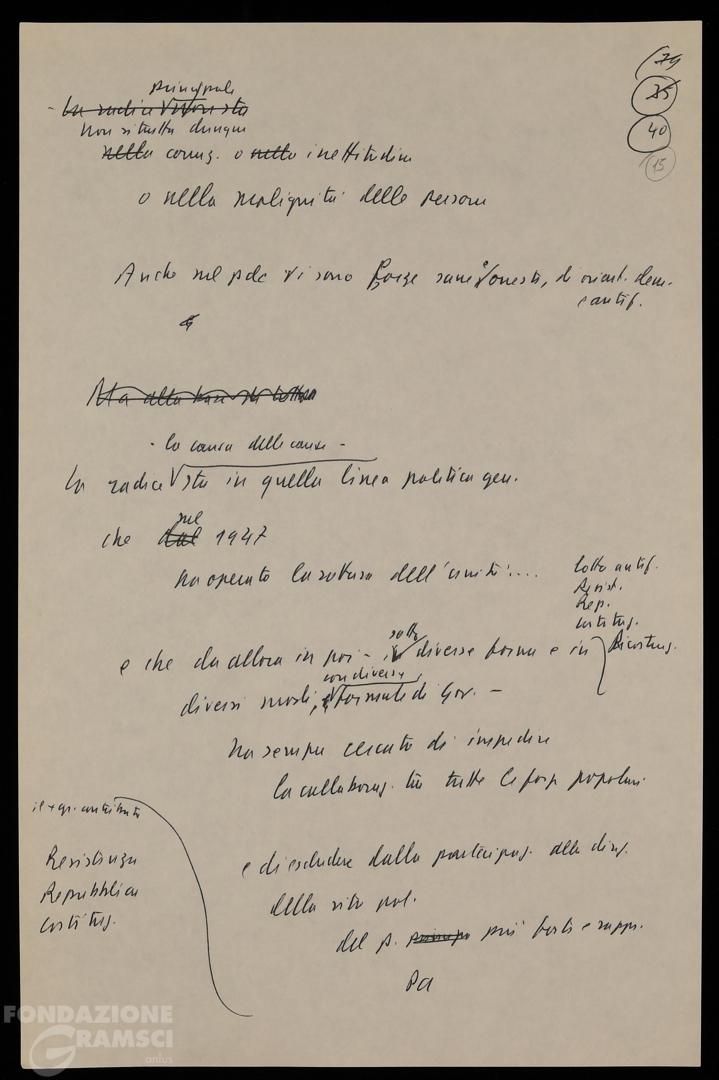 79
35
40
15
principale
- La radice non sta
Non si tratta dunque
nella corruz. o nella inettitudine
o nella malignità delle persone
Anche nel pdc vi sono forze sane e oneste, di orient. dem.
e antif.
Ma alla base di tutto
- la causa delle cause -
La radice sta in quella linea politica gen.
che dal nel 1947
ha operato la rottura dell'unità....
lotta antif.
Resist.
Rep.
Costituz.
Ricostruz.
e che da allora in poi - in sotto diverse forme e in
diversi modi, e con diverse formule di Gov. -
ha sempre cercato di impedire
la collaboraz. tra tutte le forze popolari
il + gr. contributo
Resistenza
Repubblica
Costituz.
e di escludere dalla partecipaz. alla direz.
della vita pol.
del p. più forte e rappr.
PCI
FONDAZIONE
GRAMSCI
onlus